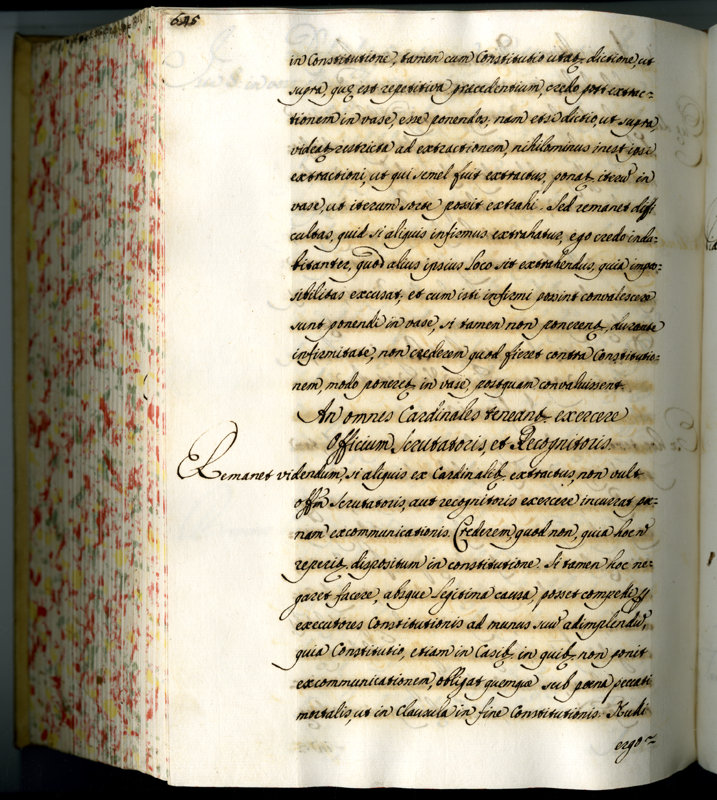 645
in Constitutione, tamen cum Constitutio utat. dictione, ut
supra, quę est repetitiva precedentium, credo post extrac-
tionem in vase, esse ponendos, nam etsi dictio, ut supra,
videat. restricta ad extractionem, nihilominus inest ipsi
extractioni, ut qui semel fuit extractus, ponat. iteru in
vase, ut iterum sorte possit extrahi. Sed remanet diffi
cultas, quid si aliquis infirmus extrahatur, ego credo indu-
bitanter, quod alius ipsius loco sit extrahendus, quia impos-
sibilitas excusat, et cum isti infirmi possint convalescere
sunt ponendi in vase, si tamen non ponerent. durante
infirmitate, non crederem quod fieret contra Constitutio-
nem, modo poneret. in vase, postquam convaluissent.
An omnes Cardinales teneant. exercere
Officium Scrutatoris, et Recognitoris.
Remanet videndum, si aliquis ex Cardinalib. extractus, non vult
offm Scrutatoris, aut recognitoris exercere incurrat poe-
nam excommunicationis. Crederem quod non, quia hoc n
reperit. dispositum in constitutione. Si tamen hoc ne-
garet facere, absque legitima causa, posset compelli p
executores Constitutionis ad munus suu adimplendu,
quia Constitutio, etiam in Casib. in quib. non ponit
excommunicationem, obligat quemque sub poena peccati
mortalis, ut in Clausula in fine Constitutionis. Kudi
ergo